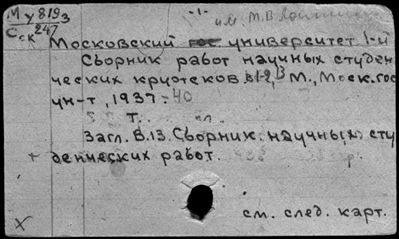 М у 819з
Сск 247
им М.В Ломон
Московский гос университет 1-й
Сборник работ научных студен-
ческих кружков в1-2, 3 М., Моск.гос
ун-т, 1937-40
т. ил.
Загл. В.13. Сборник научных сту
+ денческих работ.
X
см. след. карт.